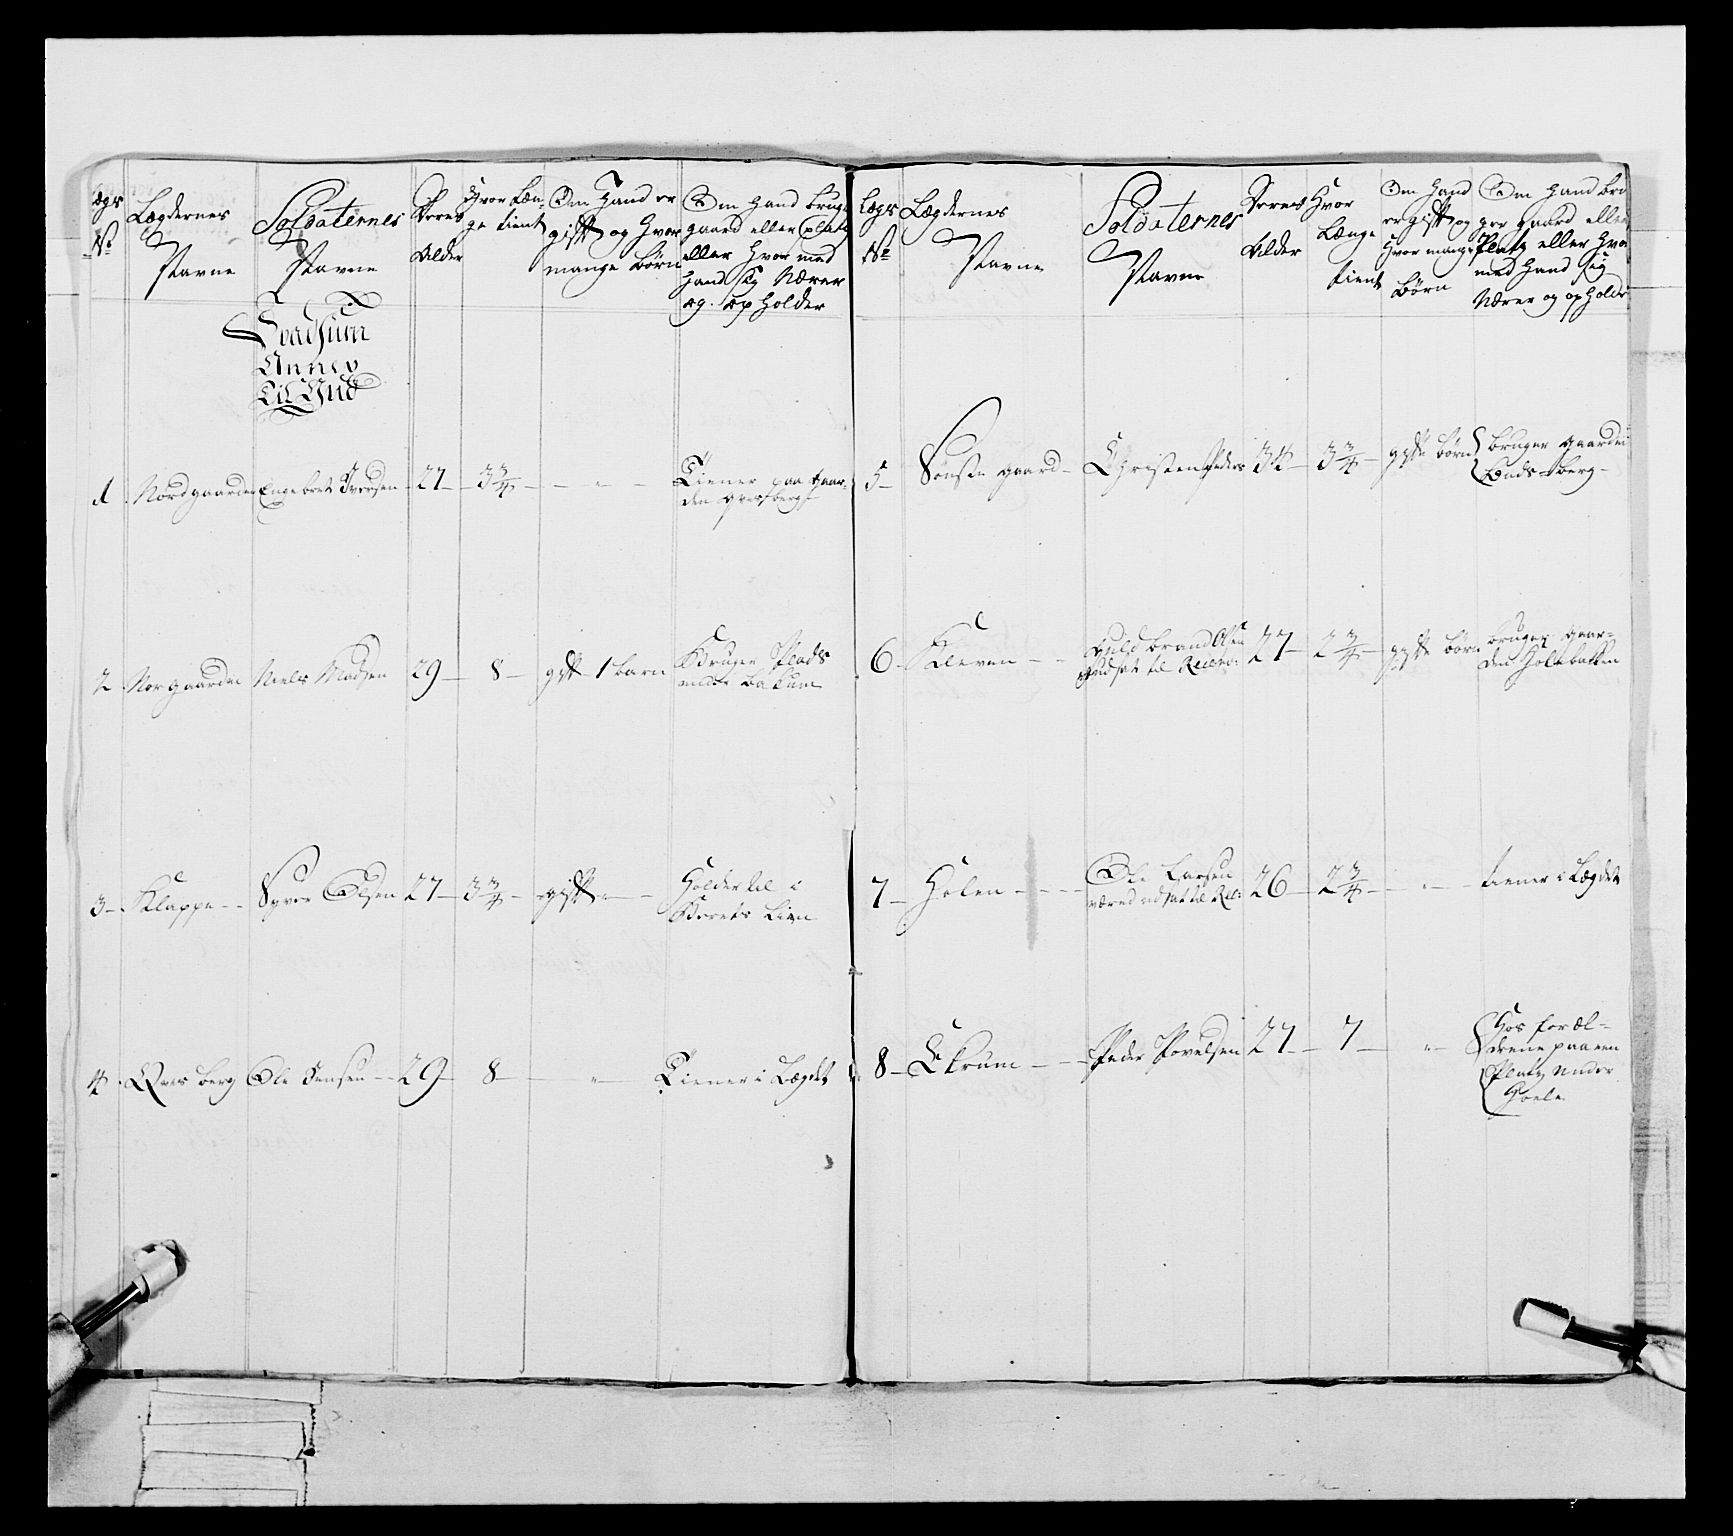 Lægs
No
Lægdernes
Navne
Soldaternes
Navne
Deres
Alder
Hvor Læn-
ge tient
Om Hand er
gift og Hvor
mange børn
Om Hand bruger
gaard eller Platz
eller Hvor med
Hand sig Nærer
og op holder
Annex
Til Lægdet
1 Nordgaarden Engebret Iversen 27 3 3/4 - " - Tiener paa gaar-
den
2 Norgaarden Niels Madsen 29 8 gift 1 barn Bruger Plads
under Bakum
3 Klappe Syver Olsen 27 3 3/4 gift " Holder til i
4 Qvesberg Ole Jensen 29 8 " Tiener i Lægdet
Lægs
No
Lægdernes
Navne
Soldaternes
Navne
Deres
Alder
Hvor
Længe
tient
Om Hand
er gift og
Hvor mange
Børn
Om Hand bru
ger gaard eller
Platz eller Hvor
med Hand sig
Nærer og op holder
5 Sønste gaard Christen Peders 34 3 3/4 gift børn bruger gaarden
berg
6 Kleven Guldbrand Olsen
udsat til Reserve: 27 2 3/4 gifte børn bruger gaar-
den Holebakken
7 Holen Ole Larsen
væred udsat til Res: 26 2 3/4 " tiener i Lægdet
8 Ekrum Peder Povelsen 27 7 " Hos foræl-
drene paa en
Platz under
Hoele